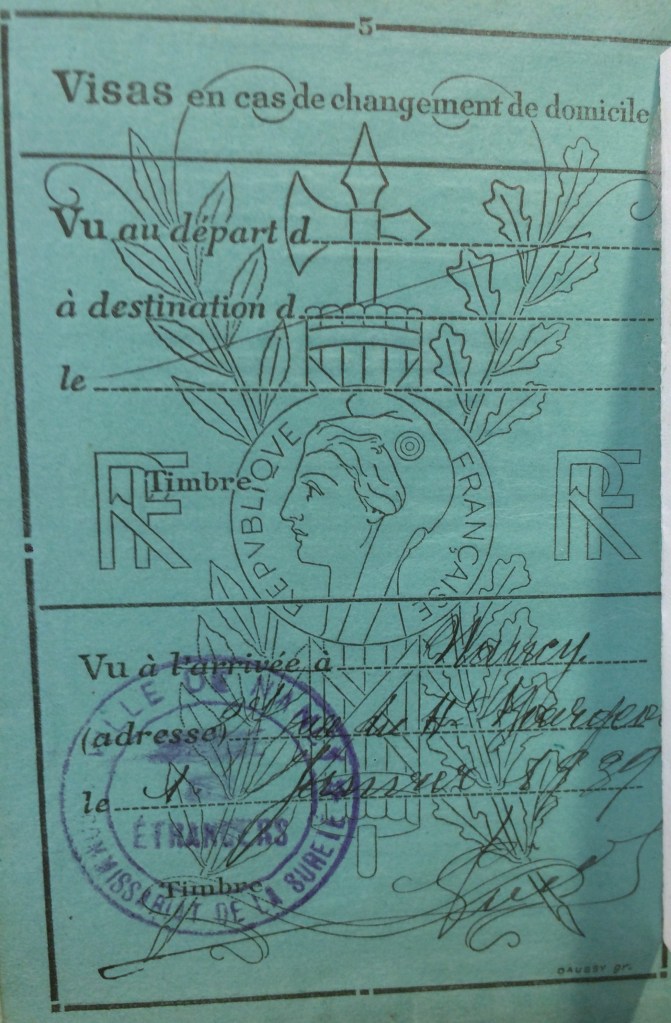 5
Visas en cas de changement de domicile
Vu au départ d
à destination d
le
RF
Timbre
REPVBLIQUE FRANÇAISE
RF
Vu à l'arrivée à Nancy
(adresse) rue du
le 1 Janvier 1939
VILLE DE NANCY
ÉTRANGERS
COMMISSARIAT DE LA SURETÉ
Timbre
DAUSSY gr.